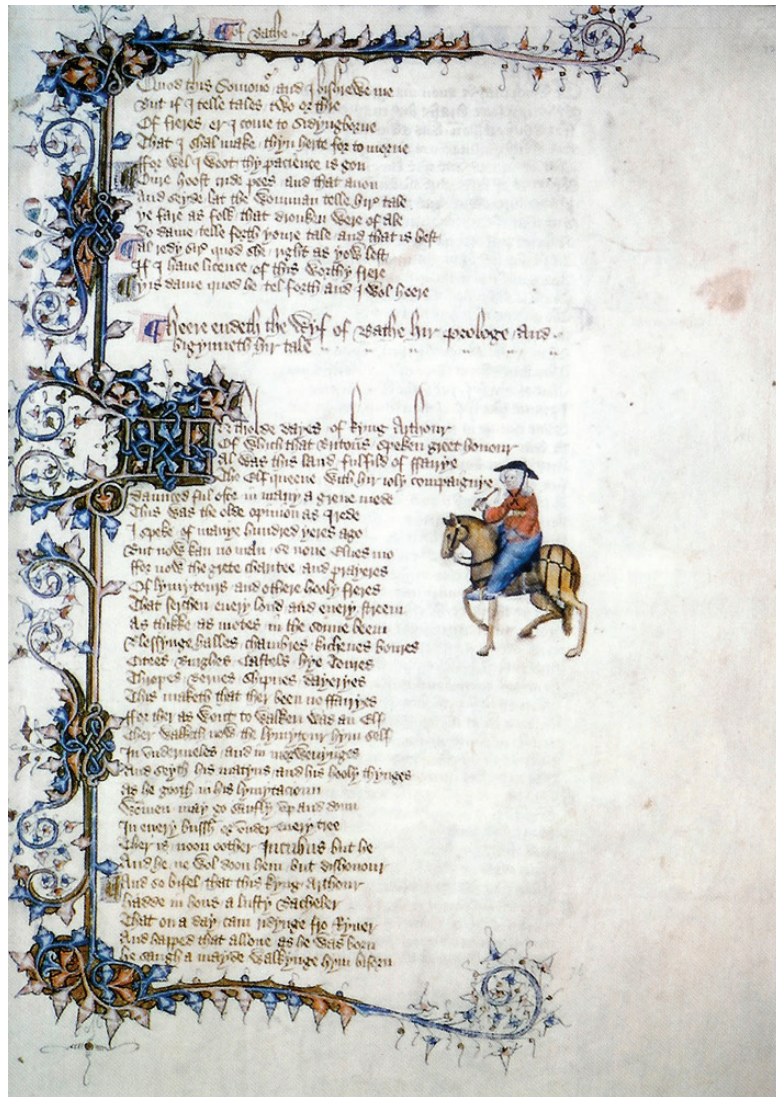 Of Bathe
Quod this Somonor and I bishrewe me
But if I telle tales two or thre
Of freres er I come to Sidyngborne
That I shal make thyn herte for to morne
ffor wel I woot thy pacience is gon
Oure hoost cride pees and that anon
And seyde lat the womman telle hire tale
ye fare as folk that dronken were of ale
Do dame telle forth youre tale and that is best
Al redy sire quod she right as yow lest
If I have licence of this worthy frere
yis dame quod he tel forth and I wol heere
Heere endeth the Wyf of Bathe hir prologe And
bigynneth hir tale
In tholde dayes of kyng Arthour
Of which that Britons speken greet honour
Al was this land fulfild of ffairye
The Elf queene with hir ioly compaignye
daunced ful ofte in many a grene mede
This was the olde opinion as I rede
I speke of manye hundred yeres ago
But now kan no man se none Elves mo
ffor now the grete charitee and prayeres
Of lymytours and othere hooly freres
That serchen every lond and every streem
As thikke as motes in the sonne beem
Blessynge halles chambres kichenes boures
Citees Burghes Castels hye Toures
Thropes Bernes Shipnes Dayeryes
This maketh that ther been no ffairyes
ffor ther as wont to walken was an Elf
Ther walketh now the lymytour hym self
In undermeles and in morwenynges
And seyth his matyns and his hooly thynges
As he gooth in his lymytacioun
Wommen may go saufly up and doun
In every bussh or under every tree
Ther is noon oother Incubus but he
And he ne wol doon hem but dishonour
And so bifel that this kyng Arthour
hadde in hous a lusty Bacheler
That on a day cam ridynge fro Ryver
And happed that allone as he was born
he saugh a mayde walkynge hym biforn